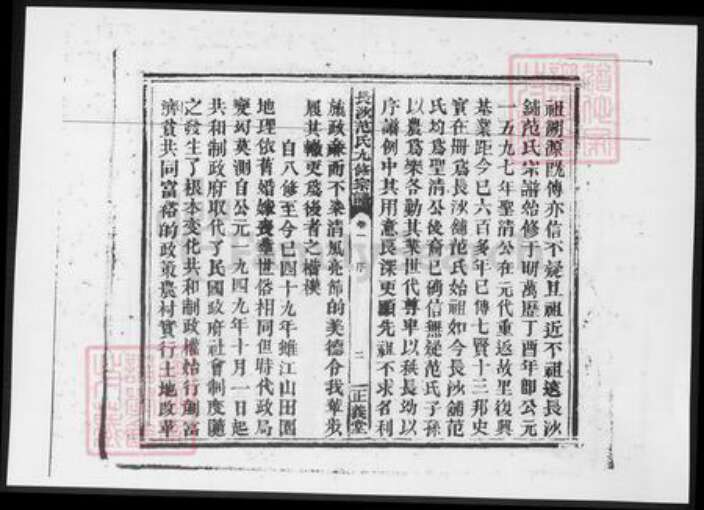 祖溯源既傳亦信不疑且祖近不祖遠長沙
鋪范氏宗譜始修于明萬歷丁酉年即公元
一五九七年聖清公在元代重返故里復興
基業距今已六百多年已傳七賢十三邦史
實在冊爲長沙鋪范氏始祖如今長沙鋪范
氏均爲聖清公後裔已確信無疑范氏子孫
以農爲樂各勤其業世代尊卑以秩長幼以
序譜例中其用意長深更顯先祖不求省利
長沙范氏九修宗譜 卷一 序 二 正義堂
施政廉而不染清風亮節的美德令我輩敬
履其轍更爲後者之楷模
自八修至今已四十九年雖江山田園
地理依舊婚嫁喪葬世俗相同但時代政局
變幻莫測自公元一九四九年十月一日起
共和制政府取代了民國政府社會制度隨
之發生了根本變化共和制政權始行劊富
濟貧共同富裕的政策農村實行土地改革